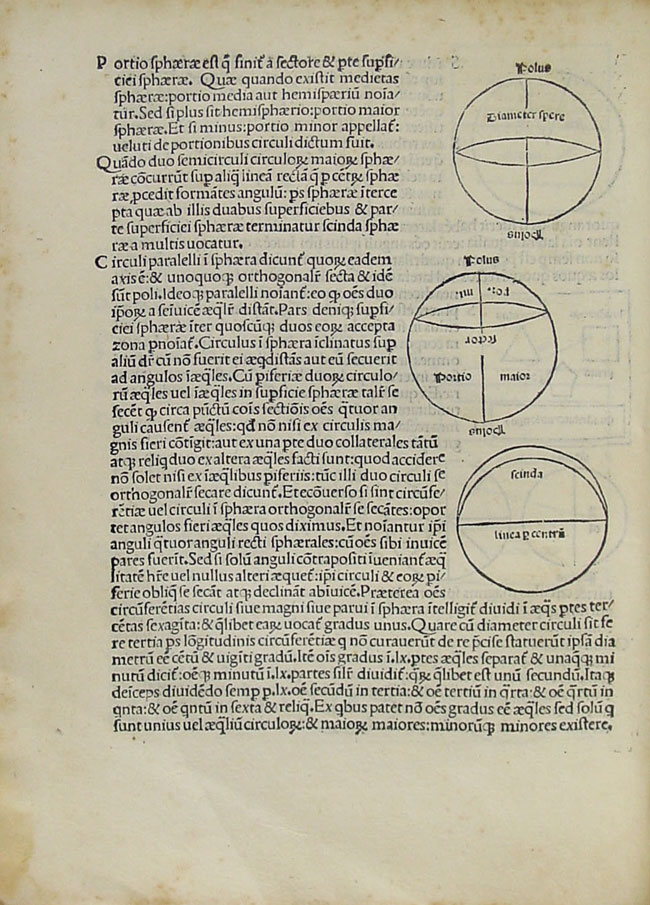 Portio sphæræ est q̄ finit᷑ a sectore & p̱te sup̱fi/
ciei sphæræ. Quæ quando existit medietas
sphæræ:portio media aut hemispæriū noia/
tur̄. Sed si plus sit hemisphærio:portio maior
sphæræ. Et si minus:portio minor appellat᷑:
ueluti de portionibus circuli dictum fuit.
Quādo duo semicirculi circuloꝝ maioꝝ sphæ/
ræ cōcurrūt sup̱ aliq̄ lineā rectā q̄ p̱ cētꝝ sphæ
ræ p̱cedit formātes angulū: ps sphæræ īterce
pta quæ ab illis duabus superficiebus & par/
te superficiei sphæræ terminatur scinda sphæ
ræ a multis uocatur.
Circuli paralelli ī sphæra dicunt᷑ quoꝝ eadem
axis ē: & unoquoq; orthogonalr̄ secta & idē
sūt poli. Ideoq; paralelli noīant᷑: eo ꝙ oēs duo
ip̄oꝝ a seīuicē æq̄lr̄ distāt. Pars deniq; sup̱fi/
ciei sphæræ īter quoscūq; duos eoꝝ accepta
zona p̱noīat᷑. Circulus ī sphæra īclinatus sup̱
aliū dr̄ cū nō fuerit ei æq̄distās aut eū secuerit
ad angulos īæq̄les. Cū p̱iferiæ duoꝝ circulo/
rū æq̄les uel īæq̄les in sup̱ficie sphæræ talr̄ se
secēt ꝙ circa pūctū coīs sectiōis oēs q̄tuor an
guli causent᷑ æq̄les: qđ nō nisi ex circulis ma/
gnis fieri cōtigit: aut ex una p̱te duo collaterales tātū
atq; reliq̄ duo ex altera æq̄les facti sunt: quod accidere
nō solet nisi ex īæq̄libus p̱iferiis: tūc illi duo circuli se
orthogonalr̄ secare dicunt᷑. Et ecōuerso si sint circūfe/
rētiæ uel circuli ī sphæra orthogonalr̄ se secātes: opor
tet angulos fieri æq̄les quos diximus. Et noīantur ip̄i
anguli q̄tuor anguli recti sphærales: cū oēs sibi inuicē
pares fuerīt. Sed si solū anguli cōtrapositi īueniant᷑ æq̄
litatē hr̄e uel nullus alteri æquet᷑: ip̄i circuli & eoꝝ p̱i/
ferie obliq̄ se secāt atq; declināt abīuicē. Præterea oēs
circūferētias circuli siue magni siue parui ī sphæra ītelligit᷑ diuidi ī æq̄s p̱tes ter/
cētas sexagīta: & q̄libet eaꝝ uocat᷑ gradus unus. Quare cū diameter circuli sit fe
re tertia p̱s lōgitudinis circūferētiæ q̄ nō curauerūt de re p̄cise statuerūt ipsā dia
metrū eē cētū & uigīti gradū. Itē oīs gradus ī .lx. p̱tes æq̄les separat᷑ & unaq̄q; mi
nutū dicit᷑: oē q; minutū ī .lx. partes silr̄ diuidit᷑: q̄ꝝ q̄libet est unū secundū. Itaq;
deīceps diuidēdo semp̱ p̱ .lx. oē secūdū in tertia: & oē tertiū in q̄rta: & oē q̄rtū in
q̄nta: & oē q̄ntū in sexta & reliq̄. Ex q̄bus patet nō oēs gradus eē æq̄les sed solū q̄
sunt unius uel æq̄liū circuloꝝ: & maioꝝ maiores: minorūq; minores existere.
Polus
Diameter spere
Polus
Polus
Por.
mi.
rector
Portio maior
Polus
scinda
linea p̱ centrū